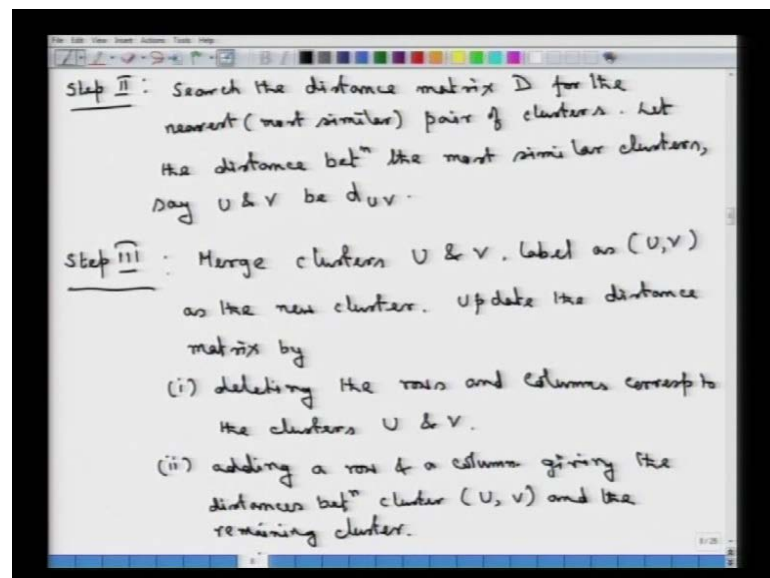 File Edit View Insert Actions Tools Help
Step II : Search the distance matrix D for the
nearest (most similar) pair of clusters. Let
the distance betⁿ the most similar clusters,
say U & V be d_UV.
Step III : Merge clusters U & V. Label as (U,V)
as the new cluster. Update the distance
matrix by
(i) deleting the rows and columns corresp to
the clusters U & V.
(ii) adding a row & a column giving the
distances betⁿ cluster (U, V) and the
remaining cluster.